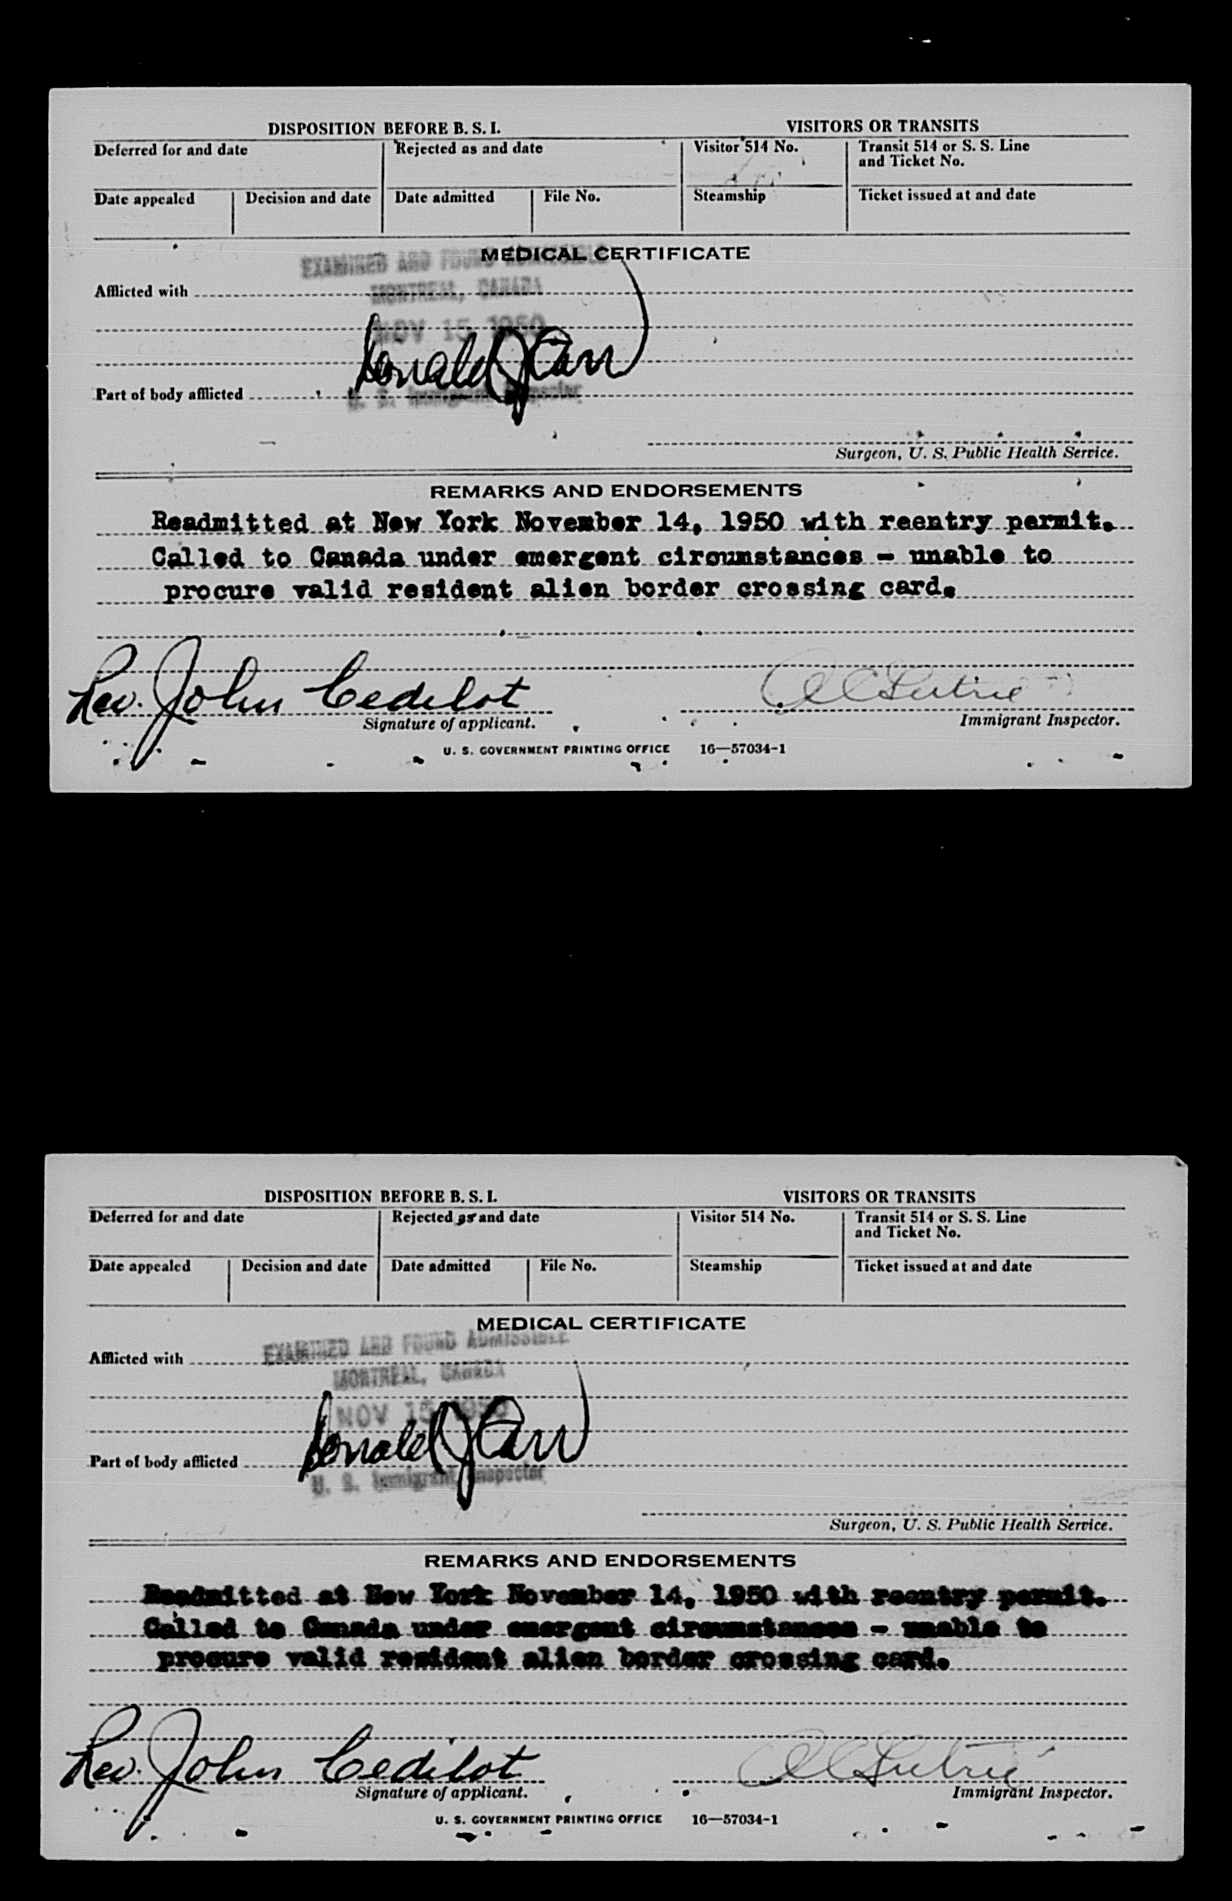 DISPOSITION BEFORE B. S. I.
VISITORS OR TRANSITS
Deferred for and date
Rejected as and date
Visitor 514 No.
Transit 514 or S. S. Line and Ticket No.
Date appealed
Decision and date
Date admitted
File No.
Steamship
Ticket issued at and date
MEDICAL CERTIFICATE
EXAMINED AND FOUND ADMISSIBLE
Afflicted with
MONTREAL, CANADA
NOV 15 1950
Donald J Carr
Part of body afflicted
U. S. Immigrant Inspector
Surgeon, U. S. Public Health Service.
REMARKS AND ENDORSEMENTS
Readmitted at New York November 14, 1950 with reentry permit.
Called to Canada under emergent circumstances - unable to
procure valid resident alien border crossing card.
Rev. John Cedilot
Signature of applicant.
Immigrant Inspector.
U. S. GOVERNMENT PRINTING OFFICE 16—57034-1
DISPOSITION BEFORE B. S. I.
VISITORS OR TRANSITS
Deferred for and date
Rejected as and date
Visitor 514 No.
Transit 514 or S. S. Line and Ticket No.
Date appealed
Decision and date
Date admitted
File No.
Steamship
Ticket issued at and date
MEDICAL CERTIFICATE
EXAMINED AND FOUND ADMISSIBLE
Afflicted with
MONTREAL, CANADA
NOV 15 1950
Donald J Carr
Part of body afflicted
U. S. Immigrant Inspector
Surgeon, U. S. Public Health Service.
REMARKS AND ENDORSEMENTS
Readmitted at New York November 14, 1950 with reentry permit.
Called to Canada under emergent circumstances - unable to
procure valid resident alien border crossing card.
Rev. John Cedilot
Signature of applicant.
Immigrant Inspector.
U. S. GOVERNMENT PRINTING OFFICE 16—57034-1